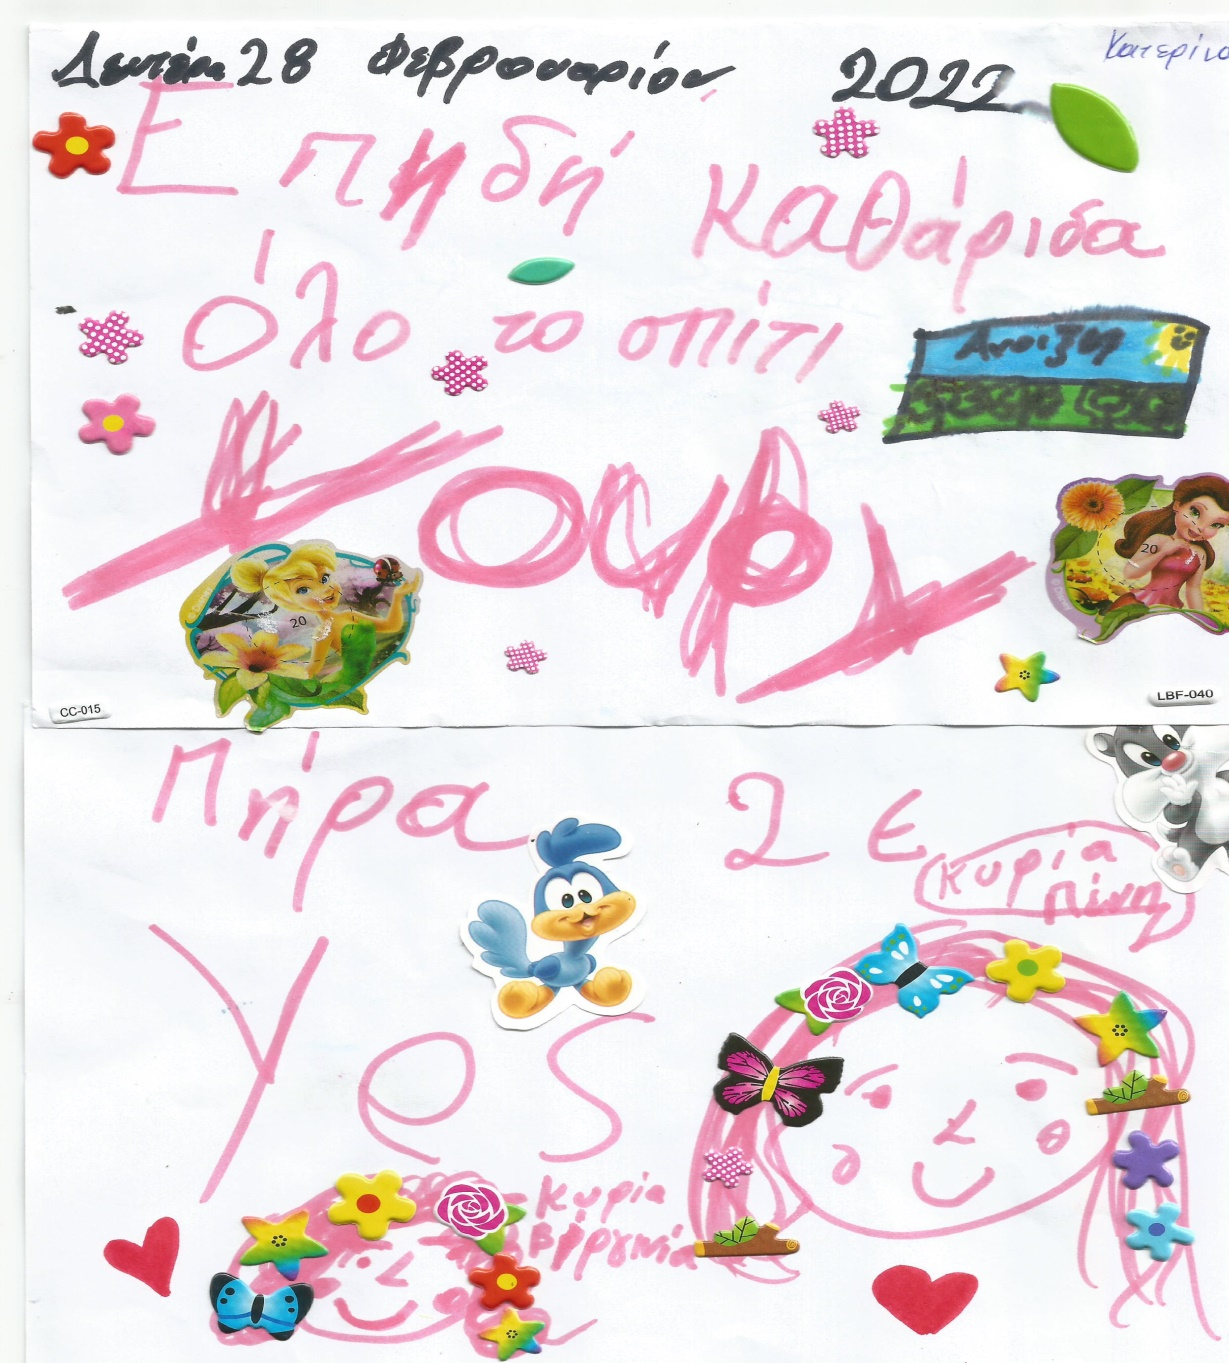 Δευτέρα 28 Φεβρουαρίου 2022
Κατερίνα
Επηδή καθάριδα
όλο το σπίτι
Ανοιξη
Χουρυ
20
20
CC-015
LBF-040
Πήρα 2 ε
Κυρία
Πένη
Yes
Κυρία